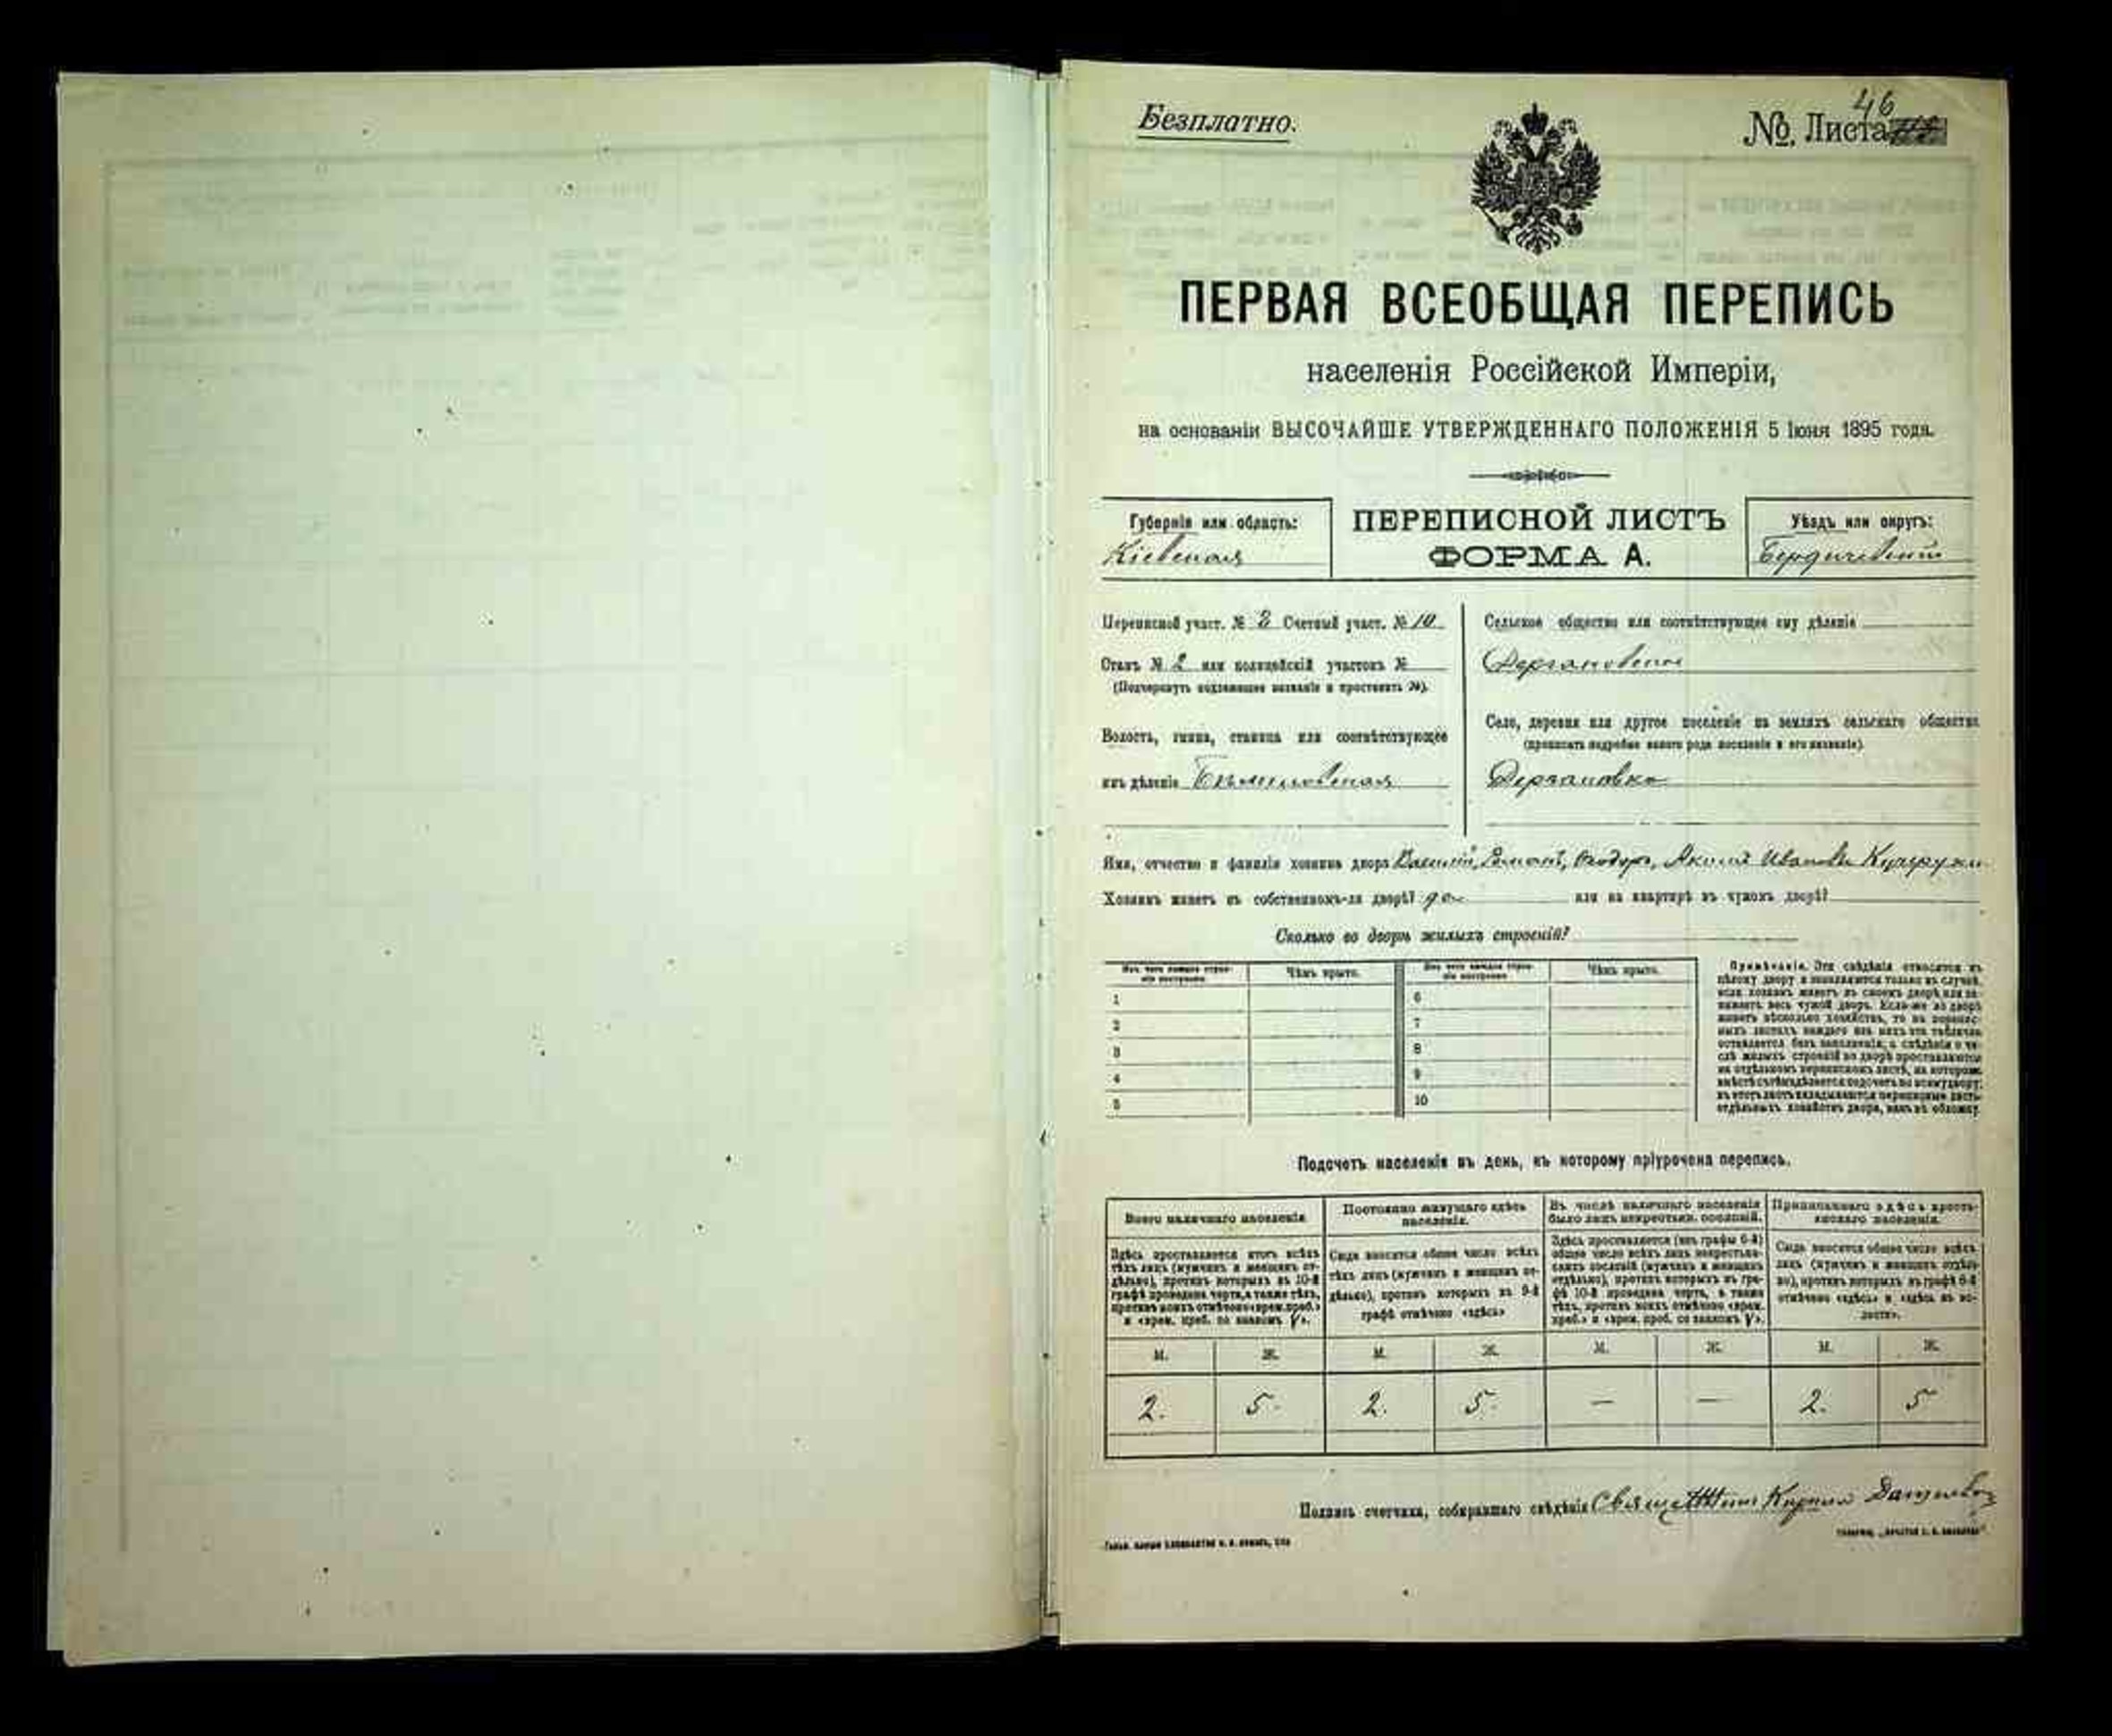 Безплатно.
46
№ Листа
ПЕРВАЯ ВСЕОБЩАЯ ПЕРЕПИСЬ
населенія Россійской Имперіи,
на основаніи ВЫСОЧАЙШЕ УТВЕРЖДЕННАГО ПОЛОЖЕНІЯ 5 Іюня 1895 года.
Губернія или область:
Кіевская
ПЕРЕПИСНОЙ ЛИСТЪ
ФОРМА А.
Уѣздъ или округъ:
Бердичевскій
Переписной участ. № 2 Счетный участ. № 10
Станъ № 2 или полицейскій участокъ №
(Подчеркнуть подлежащее названіе и проставить №).
Волость, гмина, станица или соотвѣтствующее
имъ дѣленіе
Сельское общество или соотвѣтствующее ему дѣленіе
Село, деревня или другое поселеніе на земляхъ сельскаго общества
(прописать подробно какого рода поселеніе и его названіе).
Имя, отчество и фамилія хозяина двора Василій, Романъ, Ѳеодоръ, Ивановы
Хозяинъ живетъ въ собственномъ-ли дворѣ? да или на квартирѣ въ чужомъ дворѣ?
Сколько во дворѣ жилыхъ строеній?
Изъ чего каждое строеніе построено. Чѣмъ крыто. Изъ чего каждое строеніе построено. Чѣмъ крыто.
1 6
2 7
3 8
4 9
5 10
Примѣчаніе. Эти свѣдѣнія относятся къ
цѣлому двору и заполняются только въ случаѣ,
если хозяинъ живетъ въ своемъ дворѣ или за-
нимаетъ весь чужой дворъ. Если-же во дворѣ
живетъ нѣсколько хозяйствъ, то на перепис-
ныхъ листахъ каждаго изъ нихъ эта табличка
оставляется безъ заполненія, а свѣдѣнія о чи-
слѣ жилыхъ строеній во дворѣ проставляются
на отдѣльномъ переписномъ листѣ, на которомъ
вмѣстѣ съ тѣмъ дѣлается подсчетъ по всему двору;
въ этотъ листъ вкладываются переписные листы
отдѣльныхъ хозяйствъ двора, какъ въ обложку.
Подсчетъ населенія въ день, къ которому пріурочена перепись.
Всего наличнаго населенія
Здѣсь проставляется итогъ всѣхъ
тѣхъ лицъ (мужчинъ и женщинъ от-
дѣльно), противъ которыхъ въ 10-й
графѣ проведена черта, а также тѣхъ,
противъ коихъ отмѣчено «врем. преб.»
и «врем. преб. со знакомъ V».
Постоянно живущаго здѣсь
населенія.
Сюда вносится общее число всѣхъ
тѣхъ лицъ (мужчинъ и женщинъ от-
дѣльно), противъ которыхъ въ 9-й
графѣ отмѣчено «здѣсь»
Въ числѣ наличнаго населенія
было лицъ некрестьян. сословій.
Здѣсь проставляется (изъ графы 6-й)
общее число всѣхъ лицъ некрестьян-
скихъ сословій (мужчинъ и женщинъ
отдѣльно), противъ которыхъ въ гра-
фѣ 10-й проведена черта, а также
тѣхъ, противъ коихъ отмѣчено «врем.
преб.» и «врем. преб. со знакомъ V».
Приписаннаго здѣсь кресть-
янскаго населенія.
Сюда вносится общее число всѣхъ
лицъ (мужчинъ и женщинъ отдѣль-
но), противъ которыхъ въ графѣ 8-й
отмѣчено «здѣсь» и «здѣсь въ во-
лости».
М. Ж. М. Ж. М. Ж. М. Ж.
2. 5. 2. 5. — — 2. 5
Подпись счетчика, собиравшаго свѣдѣнія Священникъ